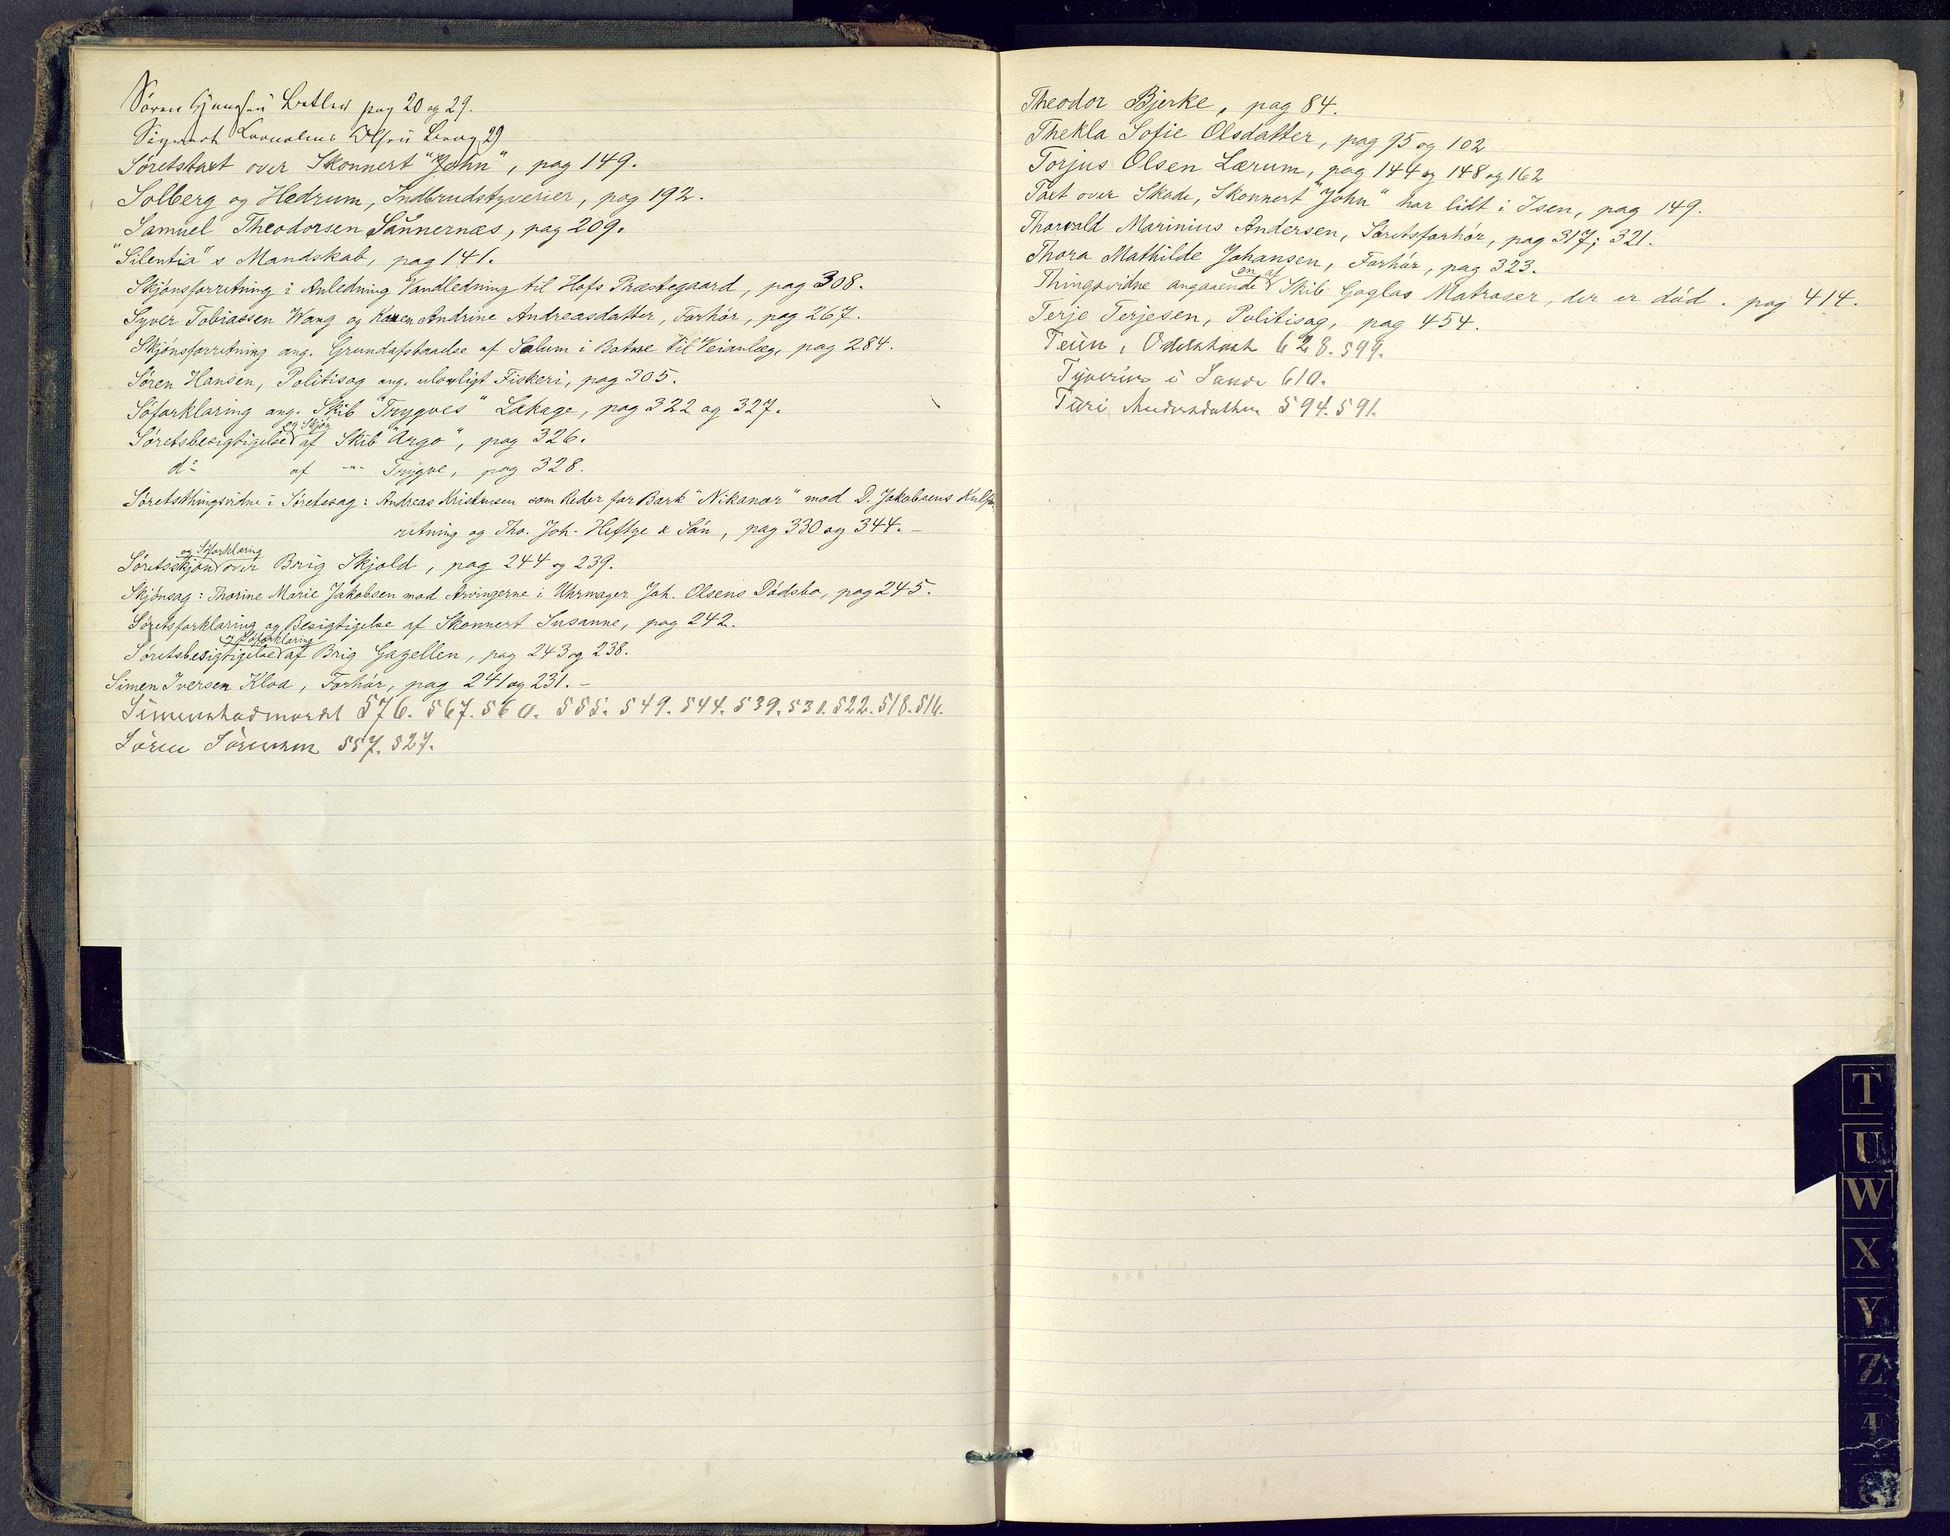 Søren Betler pag 20 og 29.
Olsen 29
Søretstaxt over Skonnert "John", pag 149.
Solberg og Hedrum, Indbrudstyverier, pag 192.
Samuel Theodorsen Sannernæs, pag 209.
"Silentia"s Mandskab, pag 141.
Skjönsforretning i Anledning Vandledning til Hofs Præstegaard, pag 308.
Syver Tobiassen Wang og Karen Andrine Andreasdatter, Forhør, pag 267.
Skjönsforretning ang. Grundafstaaelse af Solum i Botne til Veianlæg, pag 284.
Søren Hansen, Politisag ang. ulovligt Fiskeri, pag 305.
Söforklaring ang. Skib "Trygves" Lækage, pag 322 og 327.
Søretsbesigtigelse og Skjön af Skib "Argo", pag 326.
do af -"- Trygve, pag 328.
Søretsthingsvidne i Søretssag: Andreas Kristensen som Reder for Bark "Nikanor" mod D. Jakobsens
retning og Tho. Joh. Heftye & Sön, pag 330 og 344. –
Søretsskjön og Söforklaring over Brig Skjold, pag 244 og 239.
Skjönsag: Thorine Marie Jakobsen mod Arvingerne i Uhrmager Joh. Olsens Dödsbo, pag 245.
Søretsforklaring og Besigtigelse af Skonnert Susanne, pag 242.
Søretsbesigtigelse og Söforklaring af Brig Gazellen, pag 243 og 238.
Simen Iversen Klod, Forhør, pag 241 og 231. –
576. 567. 560. 555. 549. 544. 539. 531. 522. 518. 516.
Sören Sörensen 557. 527.
Theodor Bjerke, pag 84.
Thekla Sofie Olsdatter, pag 95 og 102
Torjus Olsen Lærum, pag 144 og 148 og 162
Taxt over Skade, Skonnert "John" har lidt i Isen, pag 149.
Thorvald Marinius Andersen, Søretsforhør, pag 317; 321.
Thora Mathilde Johansen, Forhør, pag 323.
Thingsvidne angaaende en af Skib Goglas Matroser, der er död. pag 414.
Terje Terjesen, Politisag, pag 454.
628. 599.
Tyverier i Sande 610.
Turi Andersdatter 594. 591.
T
U
W
X
Y
Z
Æ